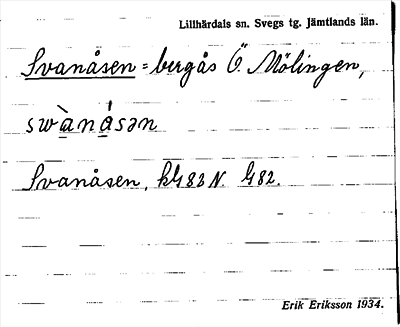 Lillhärdals sn. Svegs tg. Jämtlands län.
Svanåsen = bergås Ö. Mölingen,
swànásən
Svanåsen, kG 83 N. G 82.
Erik Eriksson 1934.